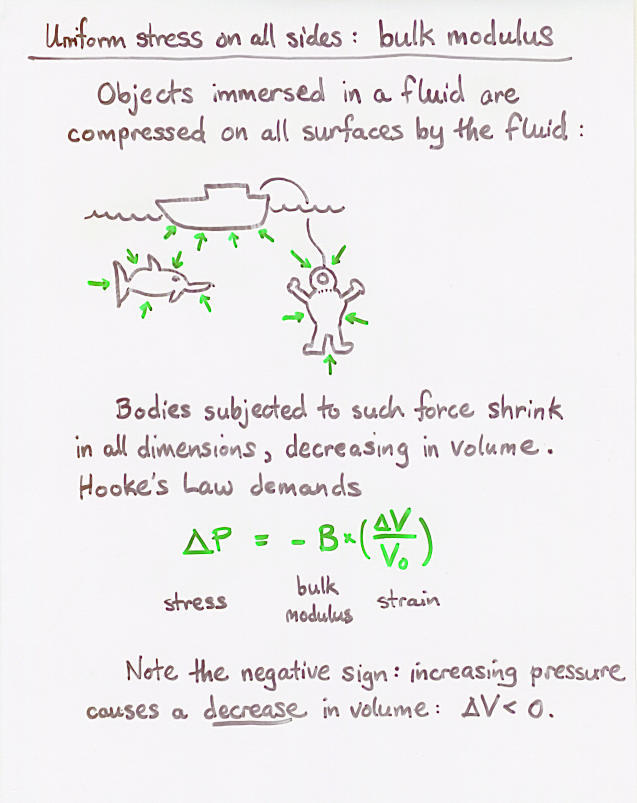 Uniform stress on all sides: bulk modulus
Objects immersed in a fluid are
compressed on all surfaces by the fluid:
Bodies subjected to such force shrink
in all dimensions, decreasing in volume.
Hooke's Law demands
ΔP = - B × (ΔV/V₀)
stress bulk modulus strain
Note the negative sign: increasing pressure
causes a decrease in volume: ΔV < 0.